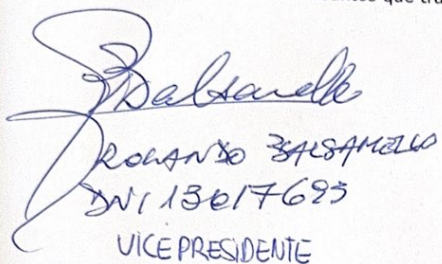 que tra
Balsamello
ROLANDO BALSAMELLO
DNI 13017695
VICEPRESIDENTE